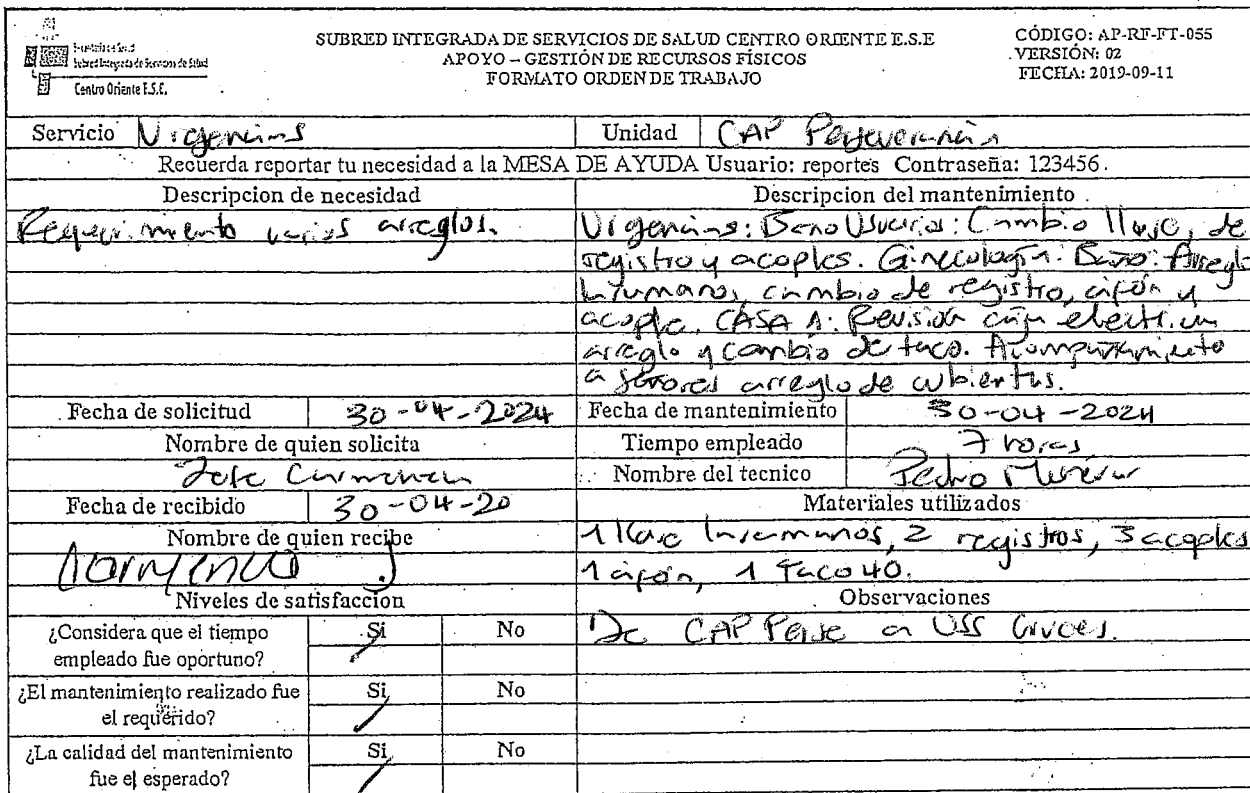 Subred Integrada de Servicios de Salud
Centro Oriente E.S.E.
SUBRED INTEGRADA DE SERVICIOS DE SALUD CENTRO ORIENTE E.S.E
APOYO – GESTIÓN DE RECURSOS FÍSICOS
FORMATO ORDEN DE TRABAJO
CÓDIGO: AP-RF-FT-055
VERSIÓN: 02
FECHA: 2019-09-11
Servicio Urgencias Unidad CAP Perseverancia
Recuerda reportar tu necesidad a la MESA DE AYUDA Usuario: reportes Contraseña: 123456.
Descripcion de necesidad
Requerimiento varios arreglos.
Descripcion del mantenimiento
Urgencias: Baño Usuarios: Cambio llave, de
registro y acoples. Ginecología: Baño: Arreglo
lavamanos, cambio de registro, sifón y
acople. CASA 1: Revisión caja electrica
arreglo y cambio de taco. Acompañamiento
a señores arreglo de cubiertas.
Fecha de solicitud 30-04-2024 Fecha de mantenimiento 30-04-2024
Nombre de quien solicita Tiempo empleado 7 horas
Nombre del tecnico Pedro
Fecha de recibido 30-04-20 Materiales utilizados
Nombre de quien recibe
1 llave lavamanos, 2 registros, 3 acoples
1 sifón, 1 taco 40.
Niveles de satisfaccion Observaciones
¿Considera que el tiempo
empleado fue oportuno?
Si No
De CAP Perse a USS Cruces.
¿El mantenimiento realizado fue
el requerido?
Si No
¿La calidad del mantenimiento
fue el esperado?
Si No